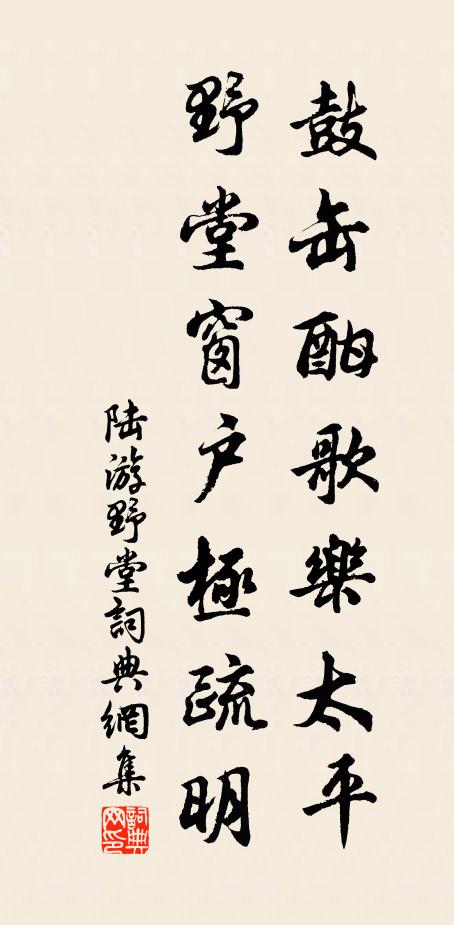 鼓缶酣歌樂太平
野堂窗户極疏明
陆游野堂詞典網集
詞典
网印